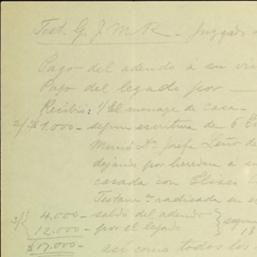 Test. G. J. M. R. - Juzgado
Pago del adendo á su
Pago del legado por
Recibió: 1/ el menage de casa
2/ $1.000- segun escritura de 6
María
dejando por heredera á su
casada con Eliseo
Testam. radicada en el
3/ 4.000- saldo del adendo
12.000- por el legado
$17.000- así como todos los
18